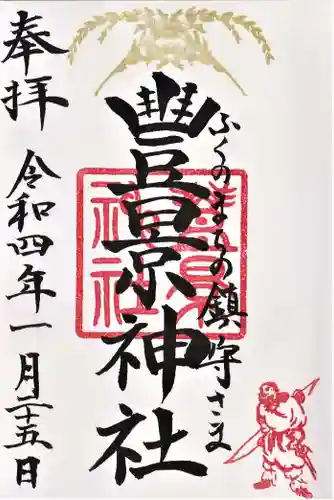 ふくのまちの鎮守さま
豐景神社
豊景
神社
奉拝
令和四年一月二十五日